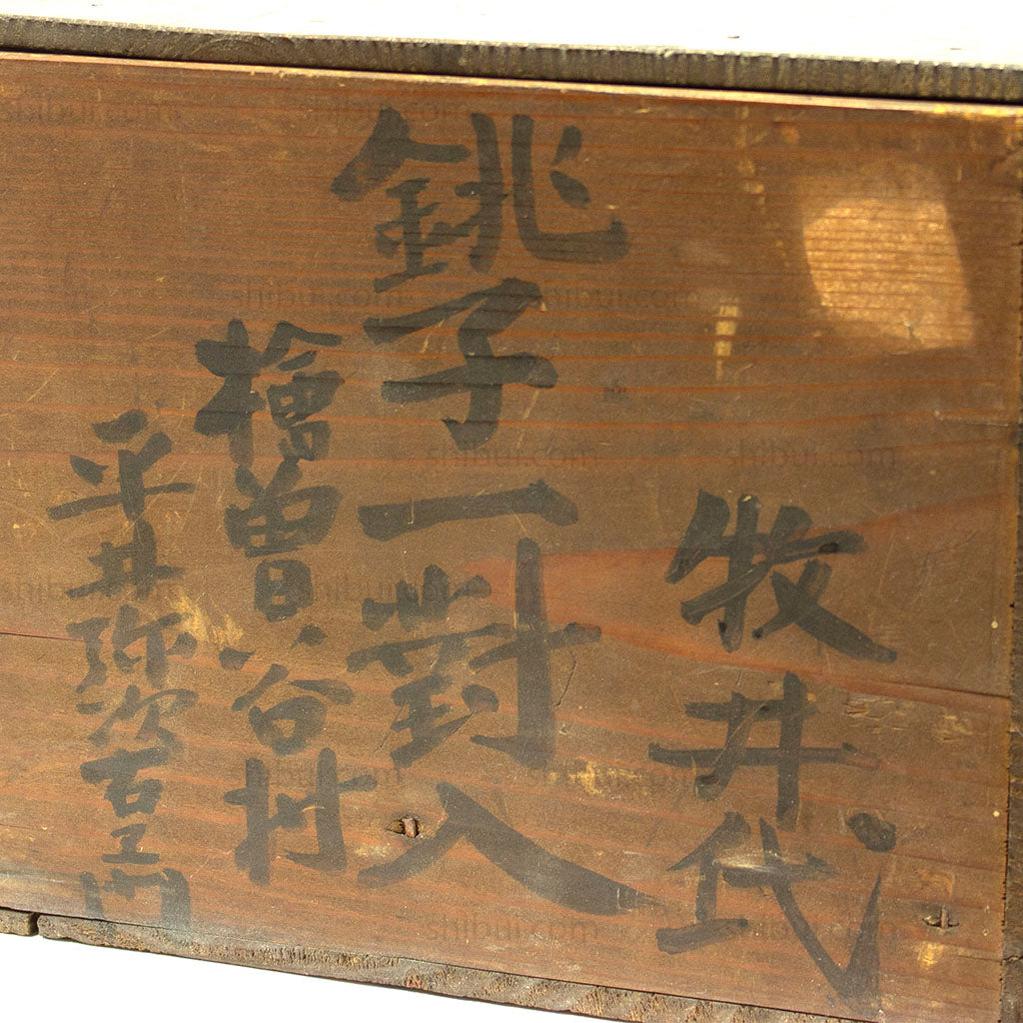 牧井代
銚子一對入
檜曽谷村
平井弥次右エ門
shibui.com